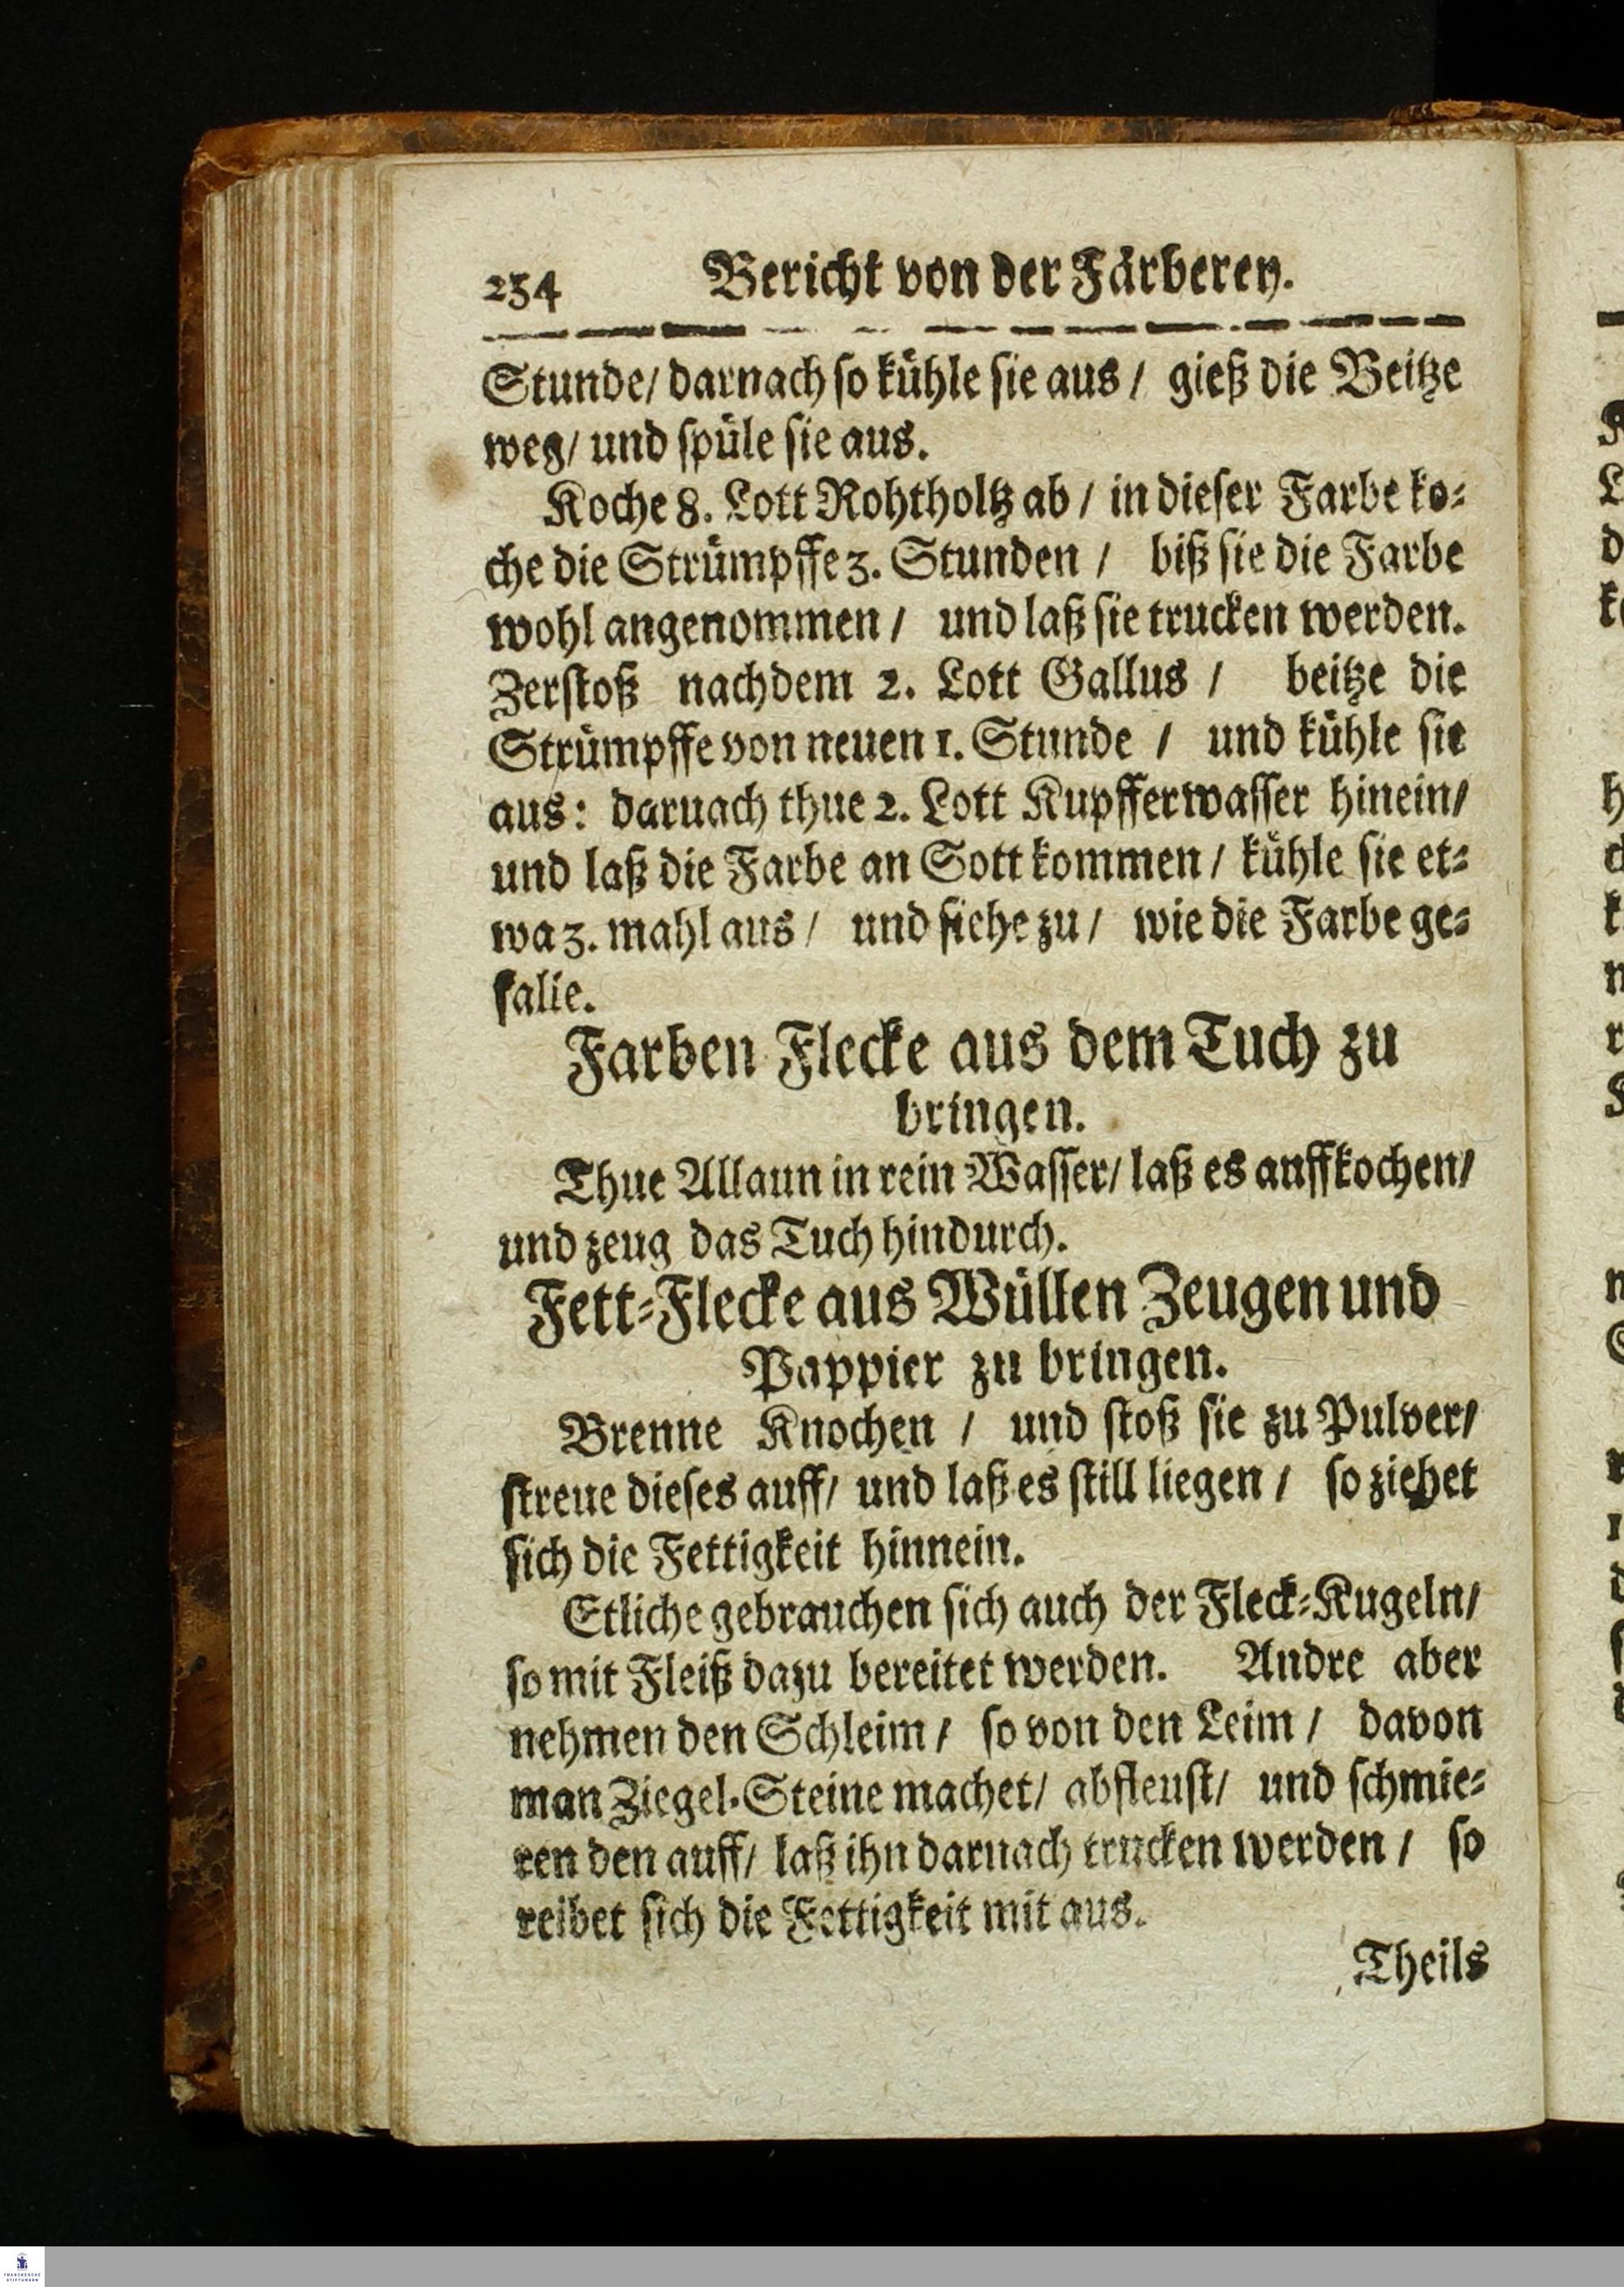 254 Bericht von der Färberey.
Stunde/ darnach so kühle sie aus / gieß die Beitze
weg/ und spüle sie aus.
Koche 8. Lott Rohtholtz ab / in dieser Farbe ko⸗
che die Strümpffe 3. Stunden / biß sie die Farbe
wohl angenommen / und laß sie trucken werden.
Zerstoß nachdem 2. Lott Gallus / beitze die
Strümpffe von neuen 1. Stunde / und kühle sie
aus: darnach thue 2. Lott Kupfferwasser hinein/
und laß die Farbe an Sott kommen / kühle sie et⸗
wa 3. mahl aus / und siehe zu / wie die Farbe ge⸗
falle.
Farben Flecke aus dem Tuch zu
bringen.
Thue Allaun in rein Wasser/ laß es auffkochen/
und zeug das Tuch hindurch.
Fett⸗Flecke aus Wüllen Zeugen und
Pappier zu bringen.
Brenne Knochen / und stoß sie zu Pulver/
streue dieses auff/ und laß es still liegen / so ziehet
sich die Fettigkeit hinnein.
Etliche gebrauchen sich auch der Fleck⸗Kugeln/
so mit Fleiß dazu bereitet werden. Andre aber
nehmen den Schleim / so von den Leim / davon
man Ziegel⸗Steine machet/ abfleust/ und schmie⸗
ren den auff/ laß ihn darnach trucken werden / so
reibet sich die Fettigkeit mit aus.
Theils
FRANCKESCHE
STIFTUNGEN